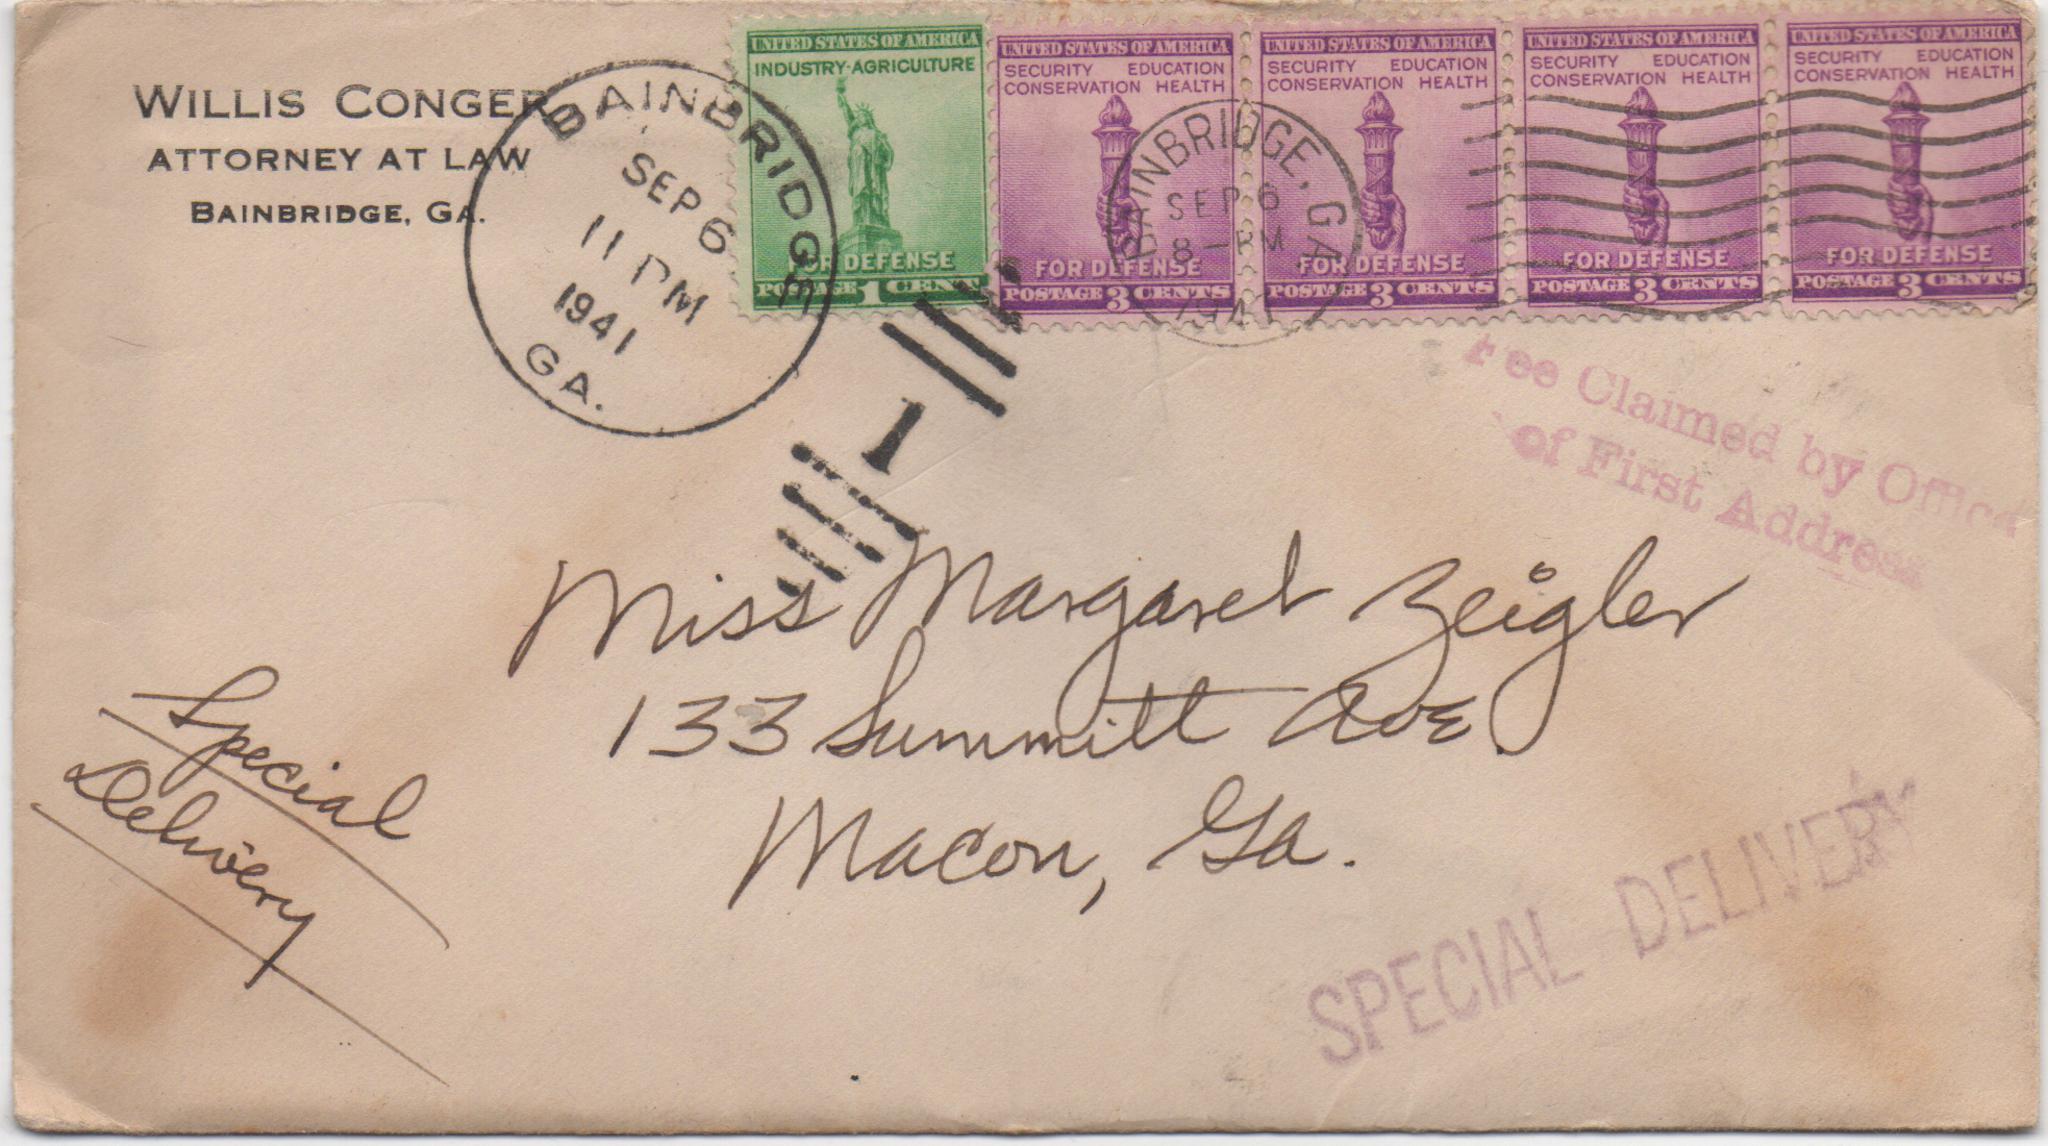 WILLIS CONGER
ATTORNEY AT LAW
BAINBRIDGE, GA.
BAINBRIDGE
SEP 6
11 PM
1941
GA.
UNITED STATES OF AMERICA
INDUSTRY-AGRICULTURE
FOR DEFENSE
POSTAGE 1 CENT
UNITED STATES OF AMERICA
SECURITY EDUCATION
CONSERVATION HEALTH
FOR DEFENSE
POSTAGE 3 CENTS
UNITED STATES OF AMERICA
SECURITY EDUCATION
CONSERVATION HEALTH
FOR DEFENSE
POSTAGE 3 CENTS
UNITED STATES OF AMERICA
SECURITY EDUCATION
CONSERVATION HEALTH
FOR DEFENSE
POSTAGE 3 CENTS
UNITED STATES OF AMERICA
SECURITY EDUCATION
CONSERVATION HEALTH
FOR DEFENSE
POSTAGE 3 CENTS
BAINBRIDGE, GA.
SEP 6
8 - PM
1941
1
Fee Claimed by Office
of First Address
Miss Margaret Zeigler
133 Summitt Ave.
Macon, Ga.
Special
Delivery
SPECIAL DELIVERY